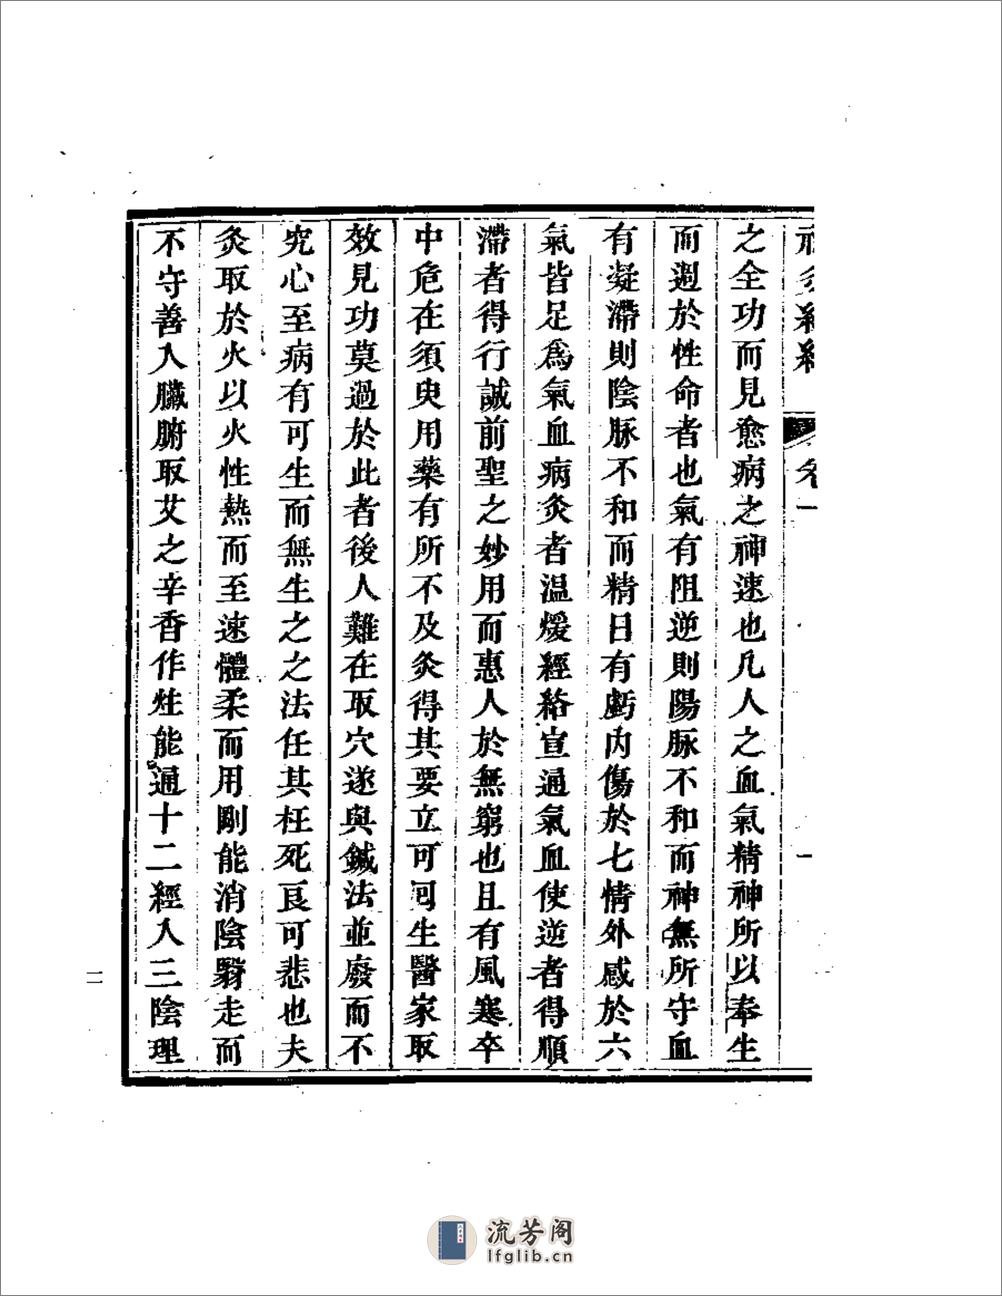 神灸經綸 卷一 一
之全功而見愈病之神速也凡人之血氣精神所以奉生
而週於性命者也氣有阻逆則陽脉不和而神無所守血
有凝滯則陰脉不和而精日有虧內傷於七情外感於六
氣皆足爲氣血病灸者温煖經絡宣通氣血使逆者得順
滯者得行誠前聖之妙用而惠人於無窮也且有風寒卒
中危在須臾用藥有所不及灸得其要立可囘生醫家取
效見功莫過於此者後人難在取穴遂與鍼法並廢而不
究心至病有可生而無生之之法任其枉死良可悲也夫
灸取於火以火性熱而至速體柔而用剛能消陰翳走而
不守善入臟腑取艾之辛香作炷能通十二經入三陰理
二
流芳阁
lfglib.cn